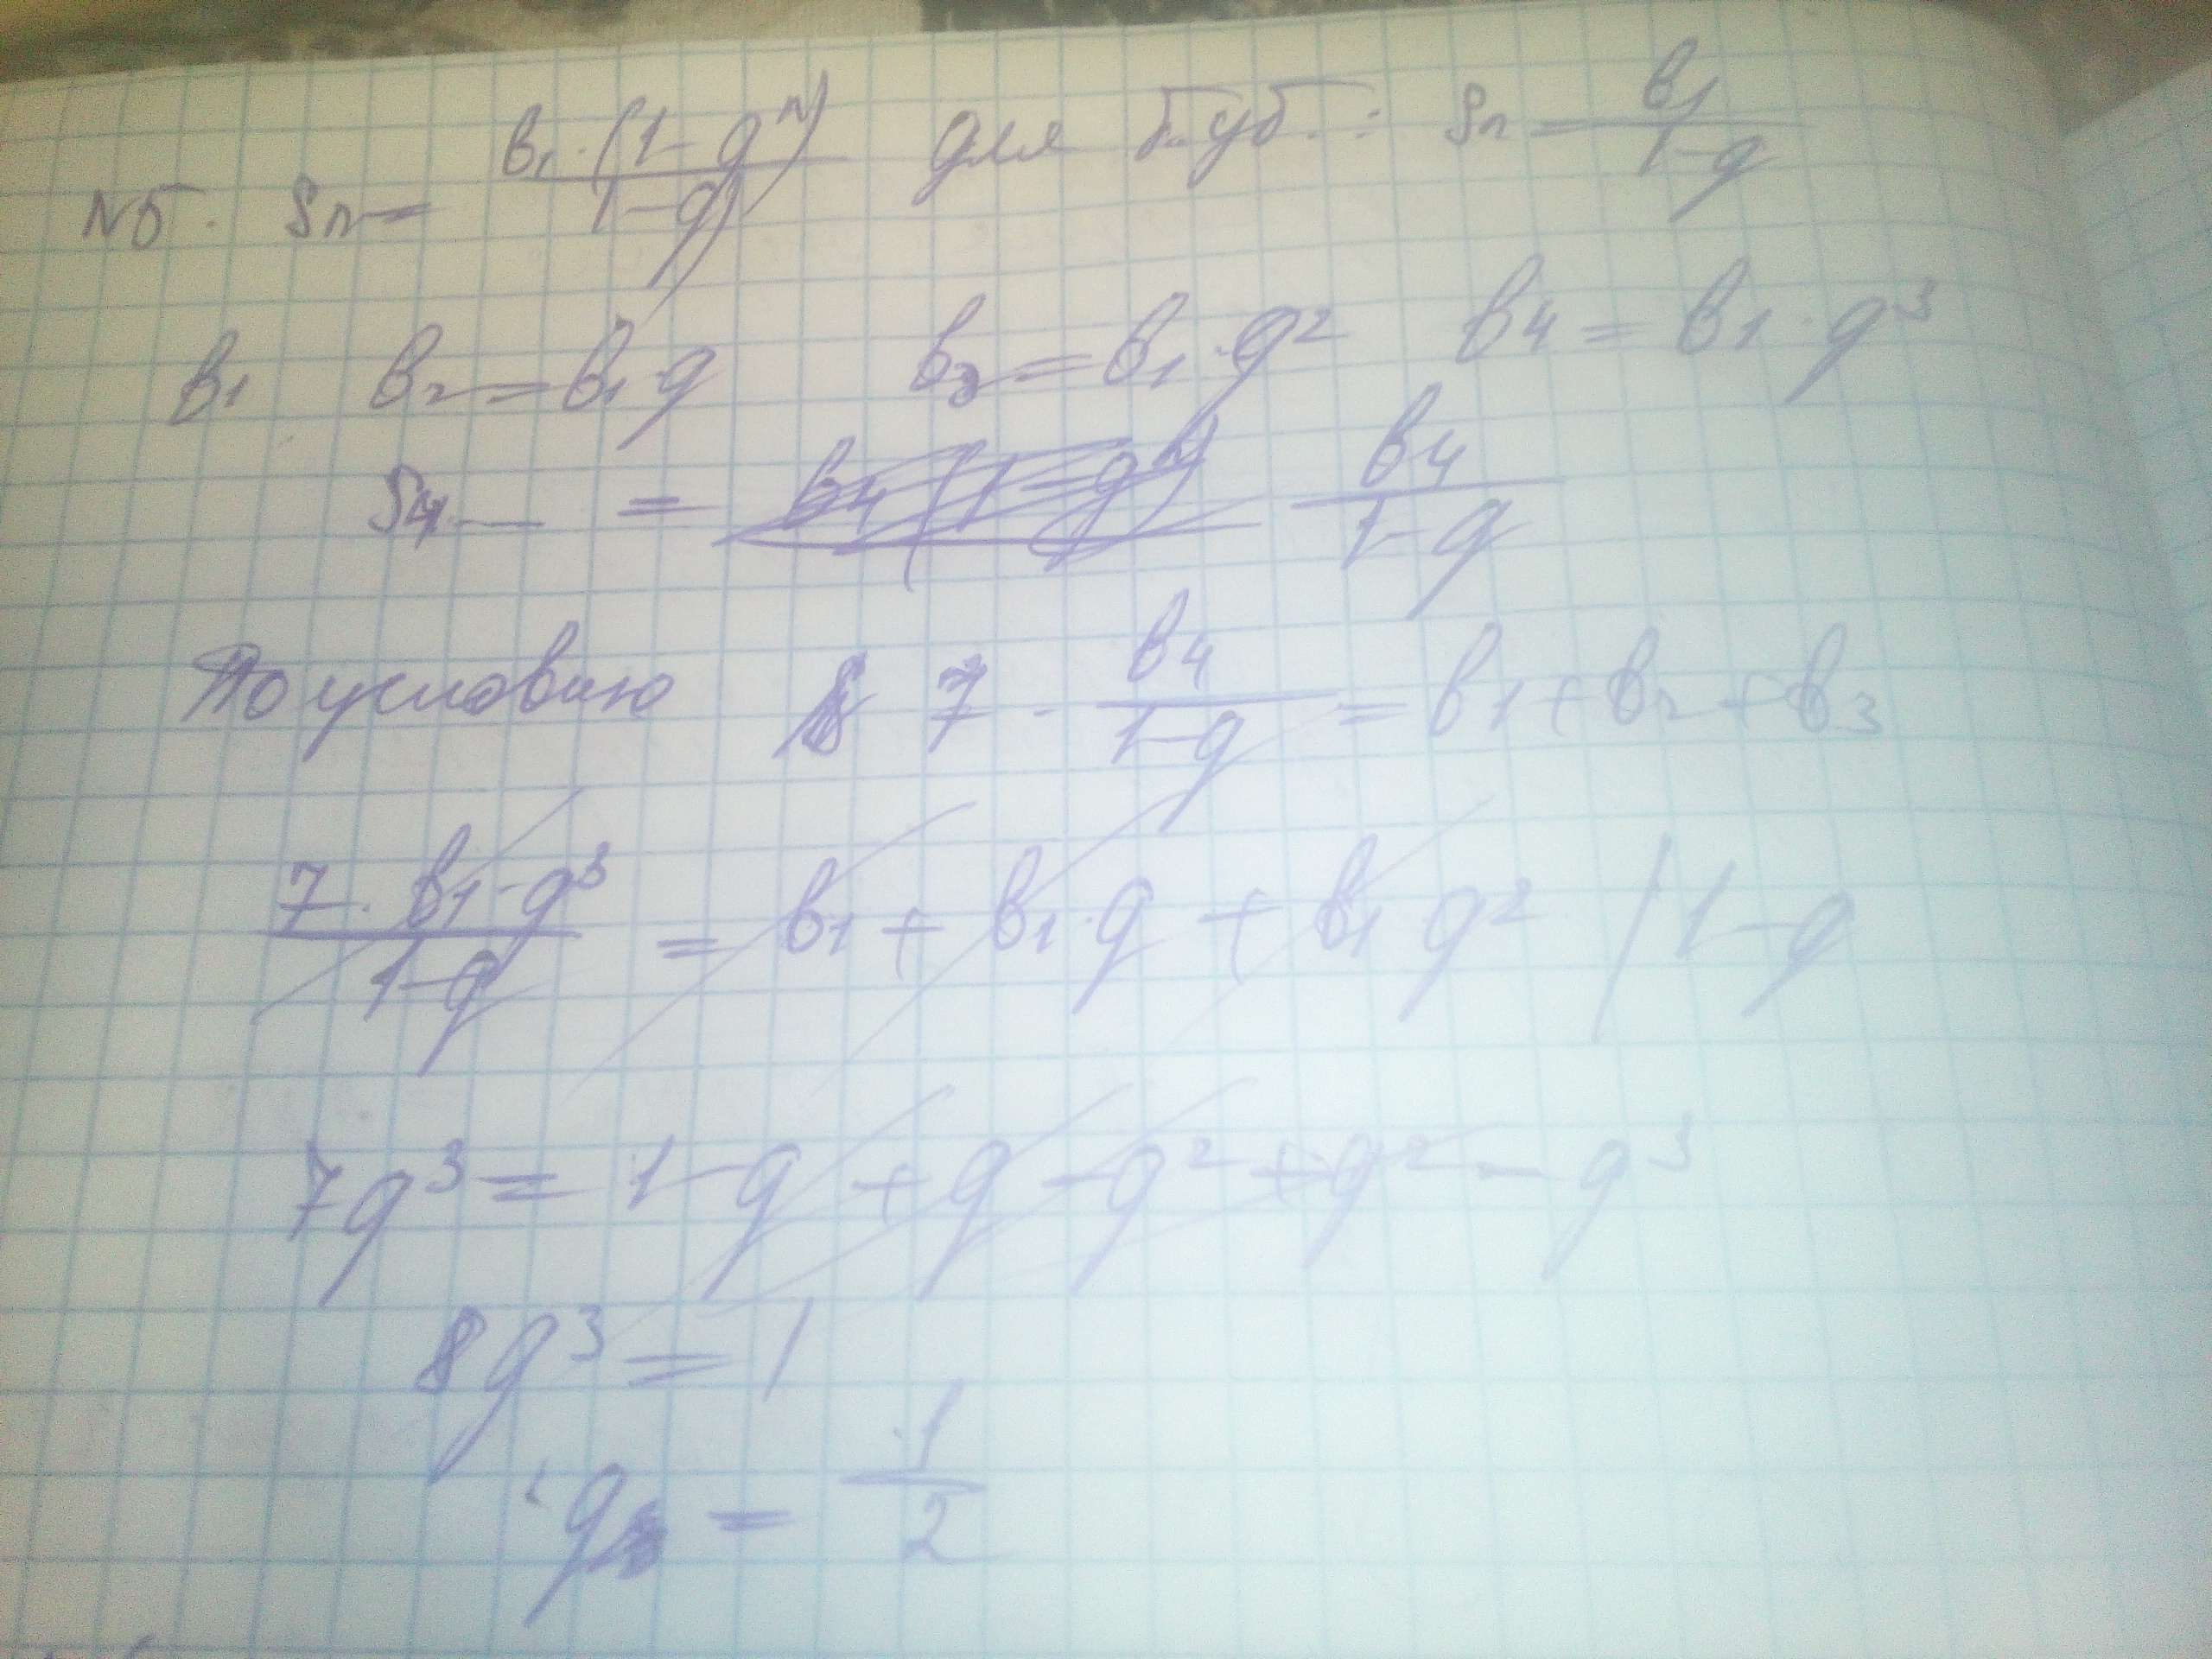 №5. Sn = в1·(1-q^n)/(1-q) для б.уб.: Sn = в1/(1-q)
в1 в2 = в1·q в3 = в1·q² в4 = в1·q³
S4... = в4/(1-q)
По условию 7 · в4/(1-q) = в1 + в2 + в3
7·в1·q³/(1-q) = в1 + в1·q + в1 q² | 1-q
7q³ = 1 - q + q - q² + q² - q³
8q³ = 1
q = 1/2